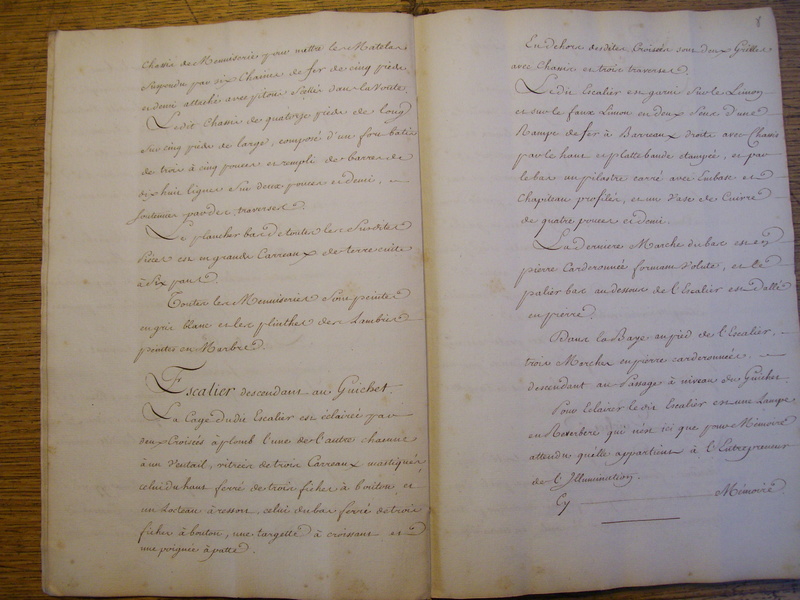 Chassis de Menuiserie pour mettre les Matelas
suspendu par six Chaines de fer de cinq pieds
et demi attaché avec pitons scellés dans la Voute.
Ledit Chassis de quatorze pieds de long
sur cinq pieds de large, composé d'un fort batis
de trois à cinq pouces et remplis de barres de
dix huit lignes sur deux pouces et demi,
soutenus par des traverses.
Le plancher bas de toutes les Susdites
Pièces est en grands Carreaux de terre cuite
à Six pans.
Toutes les Menuiseries sont peintes
en gris blanc et les plinthes des Lambris
peintes en Marbre.
Escalier descendant au Guichet
La Cage dudit Escalier est éclairée par
deux Croisées à plomb l'une de l'autre chacune
à un Ventail, vitrées de trois Carreaux mastiqués
celui du haut ferré de trois fiches à bouton et
un Loqteau à ressort, celui du bas ferré de trois
fiches à bouton, une targette à croissant et
une poignée à patte.
8
En dehors desdites Croisées sont deux Grilles
avec Chassis et trois traverses.
Ledit Escalier est garni Sur le Limon
et sur le faux Limon en deux Sens d'une
Rampe de fer à Barreaux droits avec Chassis
par le haut et platte bande étampée, et par
le bas un pilastre carré avec Embase et
Chapiteau profilés, et un Vase de Cuivre
de quatre pouces et demi.
La derniere Marche du bas est en
pierre Carderonnée formant Volute, et le
palier bas au dessous de l'Escalier est dallé
en pierre.
Dans la Baye au pied de l'Escalier,
trois Marches en pierre carderonnées
descendant au Passage à niveau du Guichet.
Pour Eclairer le dit Escalier est une Lampe
en Reverbère qui n'est ici que pour Mémoire
attendu qu'elle appartient à l'Entrepreneur
de l'Illumination.
Cy Mémoire